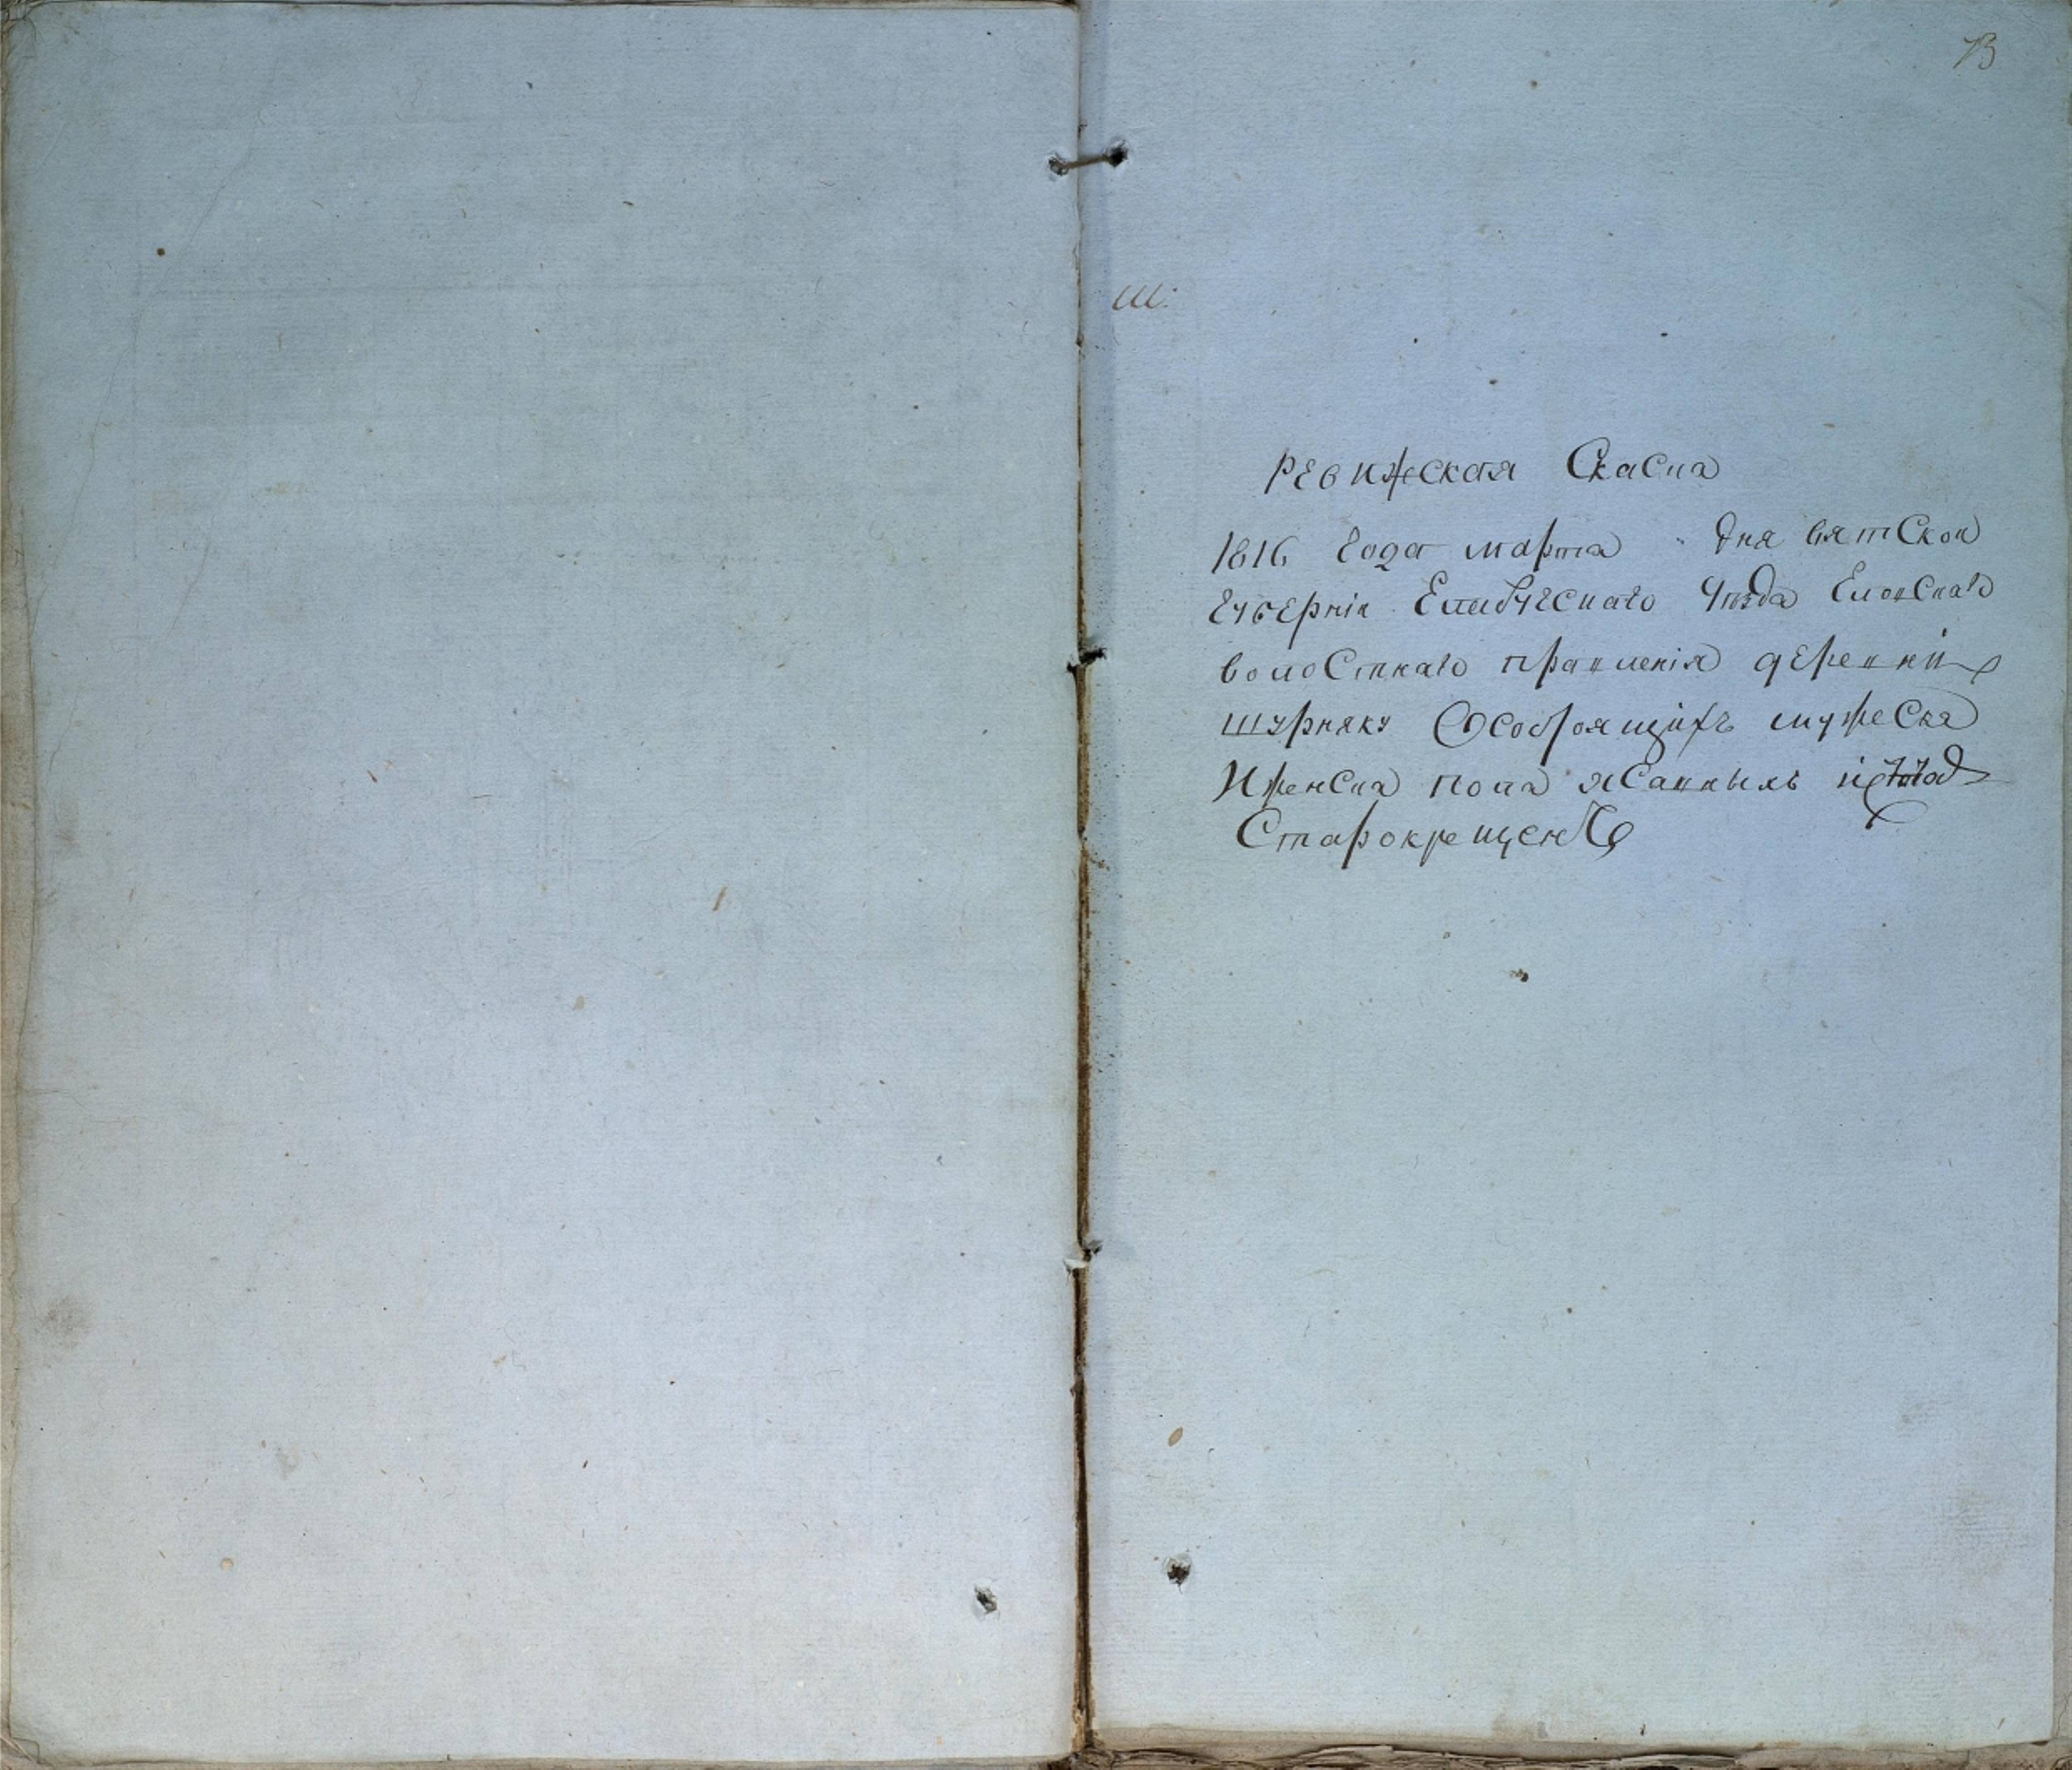 73
Ш:
Ревижская Скаска
1816 Года марта дня вятской
Губернiи Елабугскаго Уѣзда Еловскаго
волостнаго правленiя деревни
шурняку Ѡ Состоящихъ мужеска
И женска пола ясашныхъ
Старокрещенъ